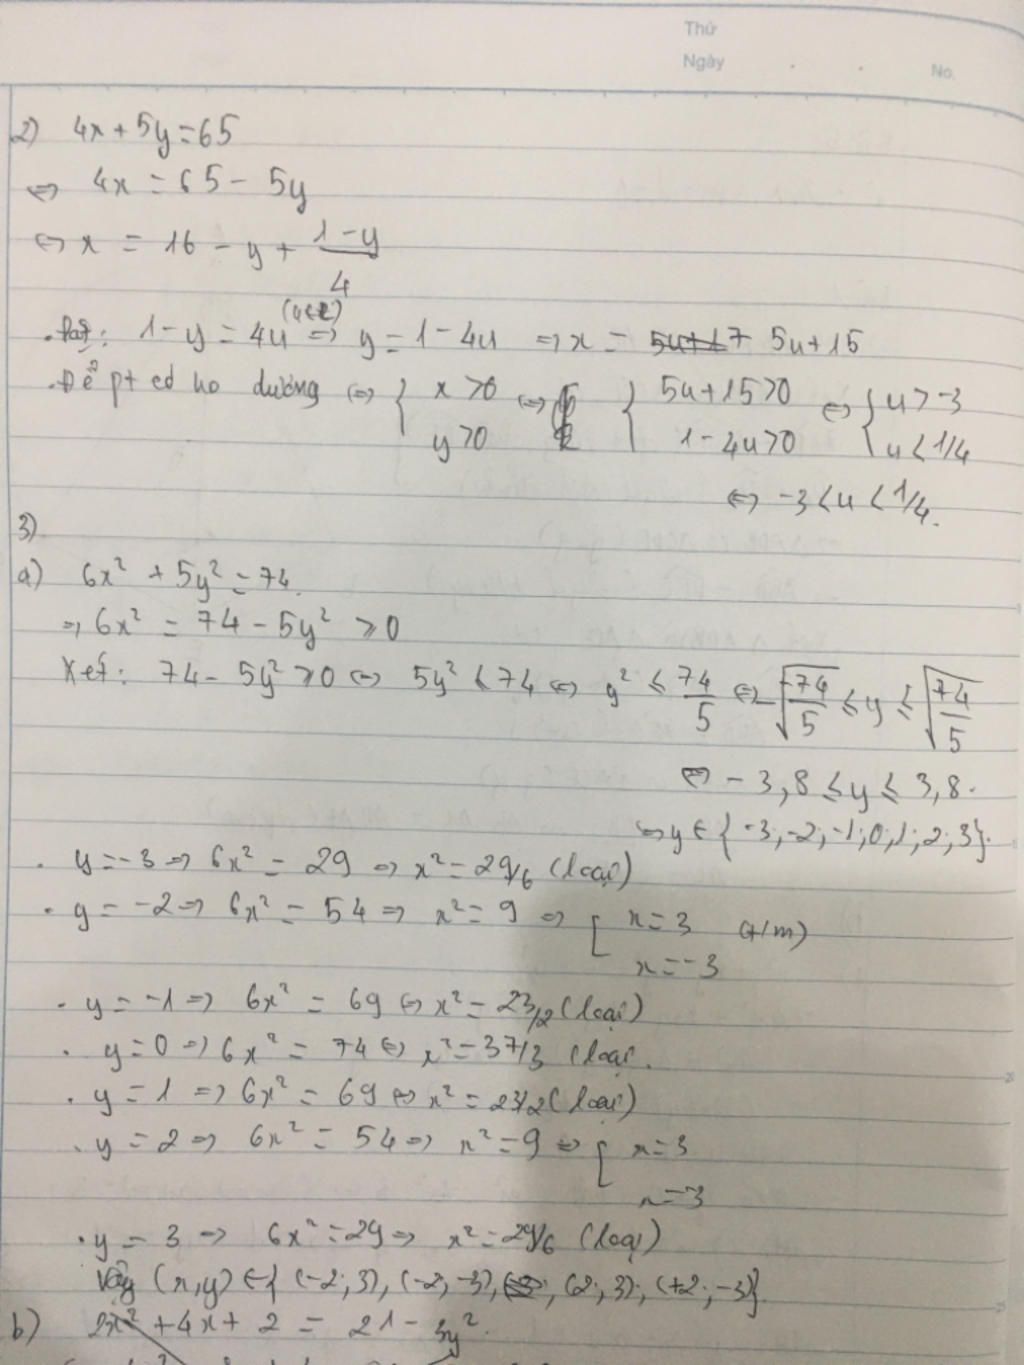 Thứ
Ngày
No.
2) 4x + 5y = 65
⇔ 4x = 65 - 5y
⇔ x = 16 - y + (1-y)/4
. Đặt: 1 - y = 4u ⇒ y = 1 - 4u ⇒ x = 5u + 15
. Để pt có no dương ⇔ { x > 0 ; y > 0 ⇔ { 5u + 15 > 0 ; 1 - 4u > 0 ⇔ { u > -3 ; u < 1/4
⇔ -3 < u < 1/4.
3)
a) 6x² + 5y² = 74.
⇒ 6x² = 74 - 5y² ≥ 0
Xét: 74 - 5y² ≥ 0 ⇔ 5y² ≤ 74 ⇔ y² ≤ 74/5 ⇔ -√(74/5) ≤ y ≤ √(74/5)
⇔ -3,8 ≤ y ≤ 3,8.
⇔ y ∈ { -3; -2; -1; 0; 1; 2; 3}.
. y = -3 ⇒ 6x² = 29 ⇒ x² = 29/6 (loại)
. y = -2 ⇒ 6x² = 54 ⇒ x² = 9 ⇒ [ x = 3 ; x = -3 (t/m)
. y = -1 ⇒ 6x² = 69 ⇔ x² = 23/2 (loại)
. y = 0 ⇒ 6x² = 74 ⇔ x² = 37/3 (loại.
. y = 1 ⇒ 6x² = 69 ⇔ x² = 23/2 (loại)
. y = 2 ⇒ 6x² = 54 ⇒ x² = 9 ⇒ [ x = 3 ; x = -3
. y = 3 ⇒ 6x² = 29 ⇒ x² = 29/6 (loại)
Vậy (x,y) ∈ { (-2; 3), (-2; -3), (2; 3); (+2; -3)}.
b) 2x² + 4x + 2 = 21 - 3y².